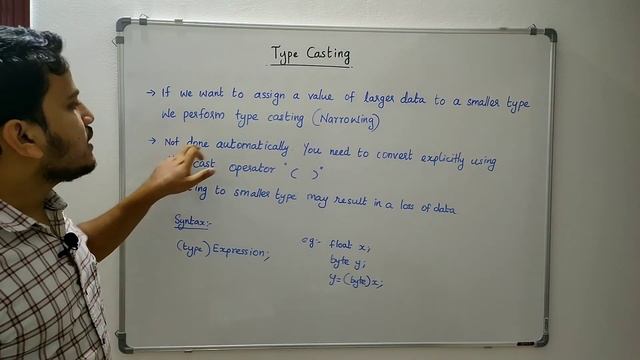 Type Casting
→ If we want to assign a value of larger data to a smaller type
We perform type casting (Narrowing)
→ Not done automatically You need to convert explicitly using
cast operator "( )"
to smaller type may result in a loss of data
Syntax:-
(type) Expression;
eg:- float x;
byte y;
y=(byte)x;